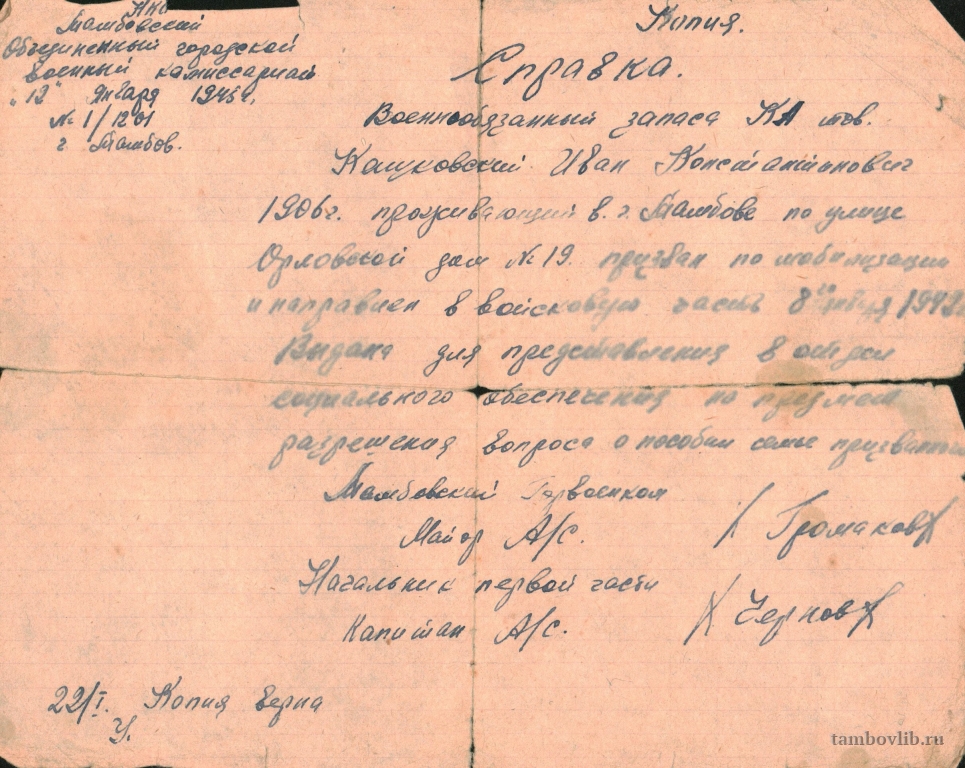 НКО
Тамбовский
Объединенный городской
военный комиссариат
"12" января 1945 г.
№ 1/1201
г. Тамбов.
Копия.
Справка.
Военнообязанный запаса КА тов.
Кашковский Иван Константинович
1906 г. проживающий в г. Тамбове по улице
Орловской дом № 19. призван по мобилизации
и направлен в войсковую часть 8го 1942
Выдана для представления в отдел
социального обеспечения на предмет
разрешения вопроса о пособии семье
Тамбовский Горвоенком
Майор А/С. /Громаков/
Начальник первой части
Капитан А/С. /Чернов/
22/I. Копия верна
У.
tambovlib.ru